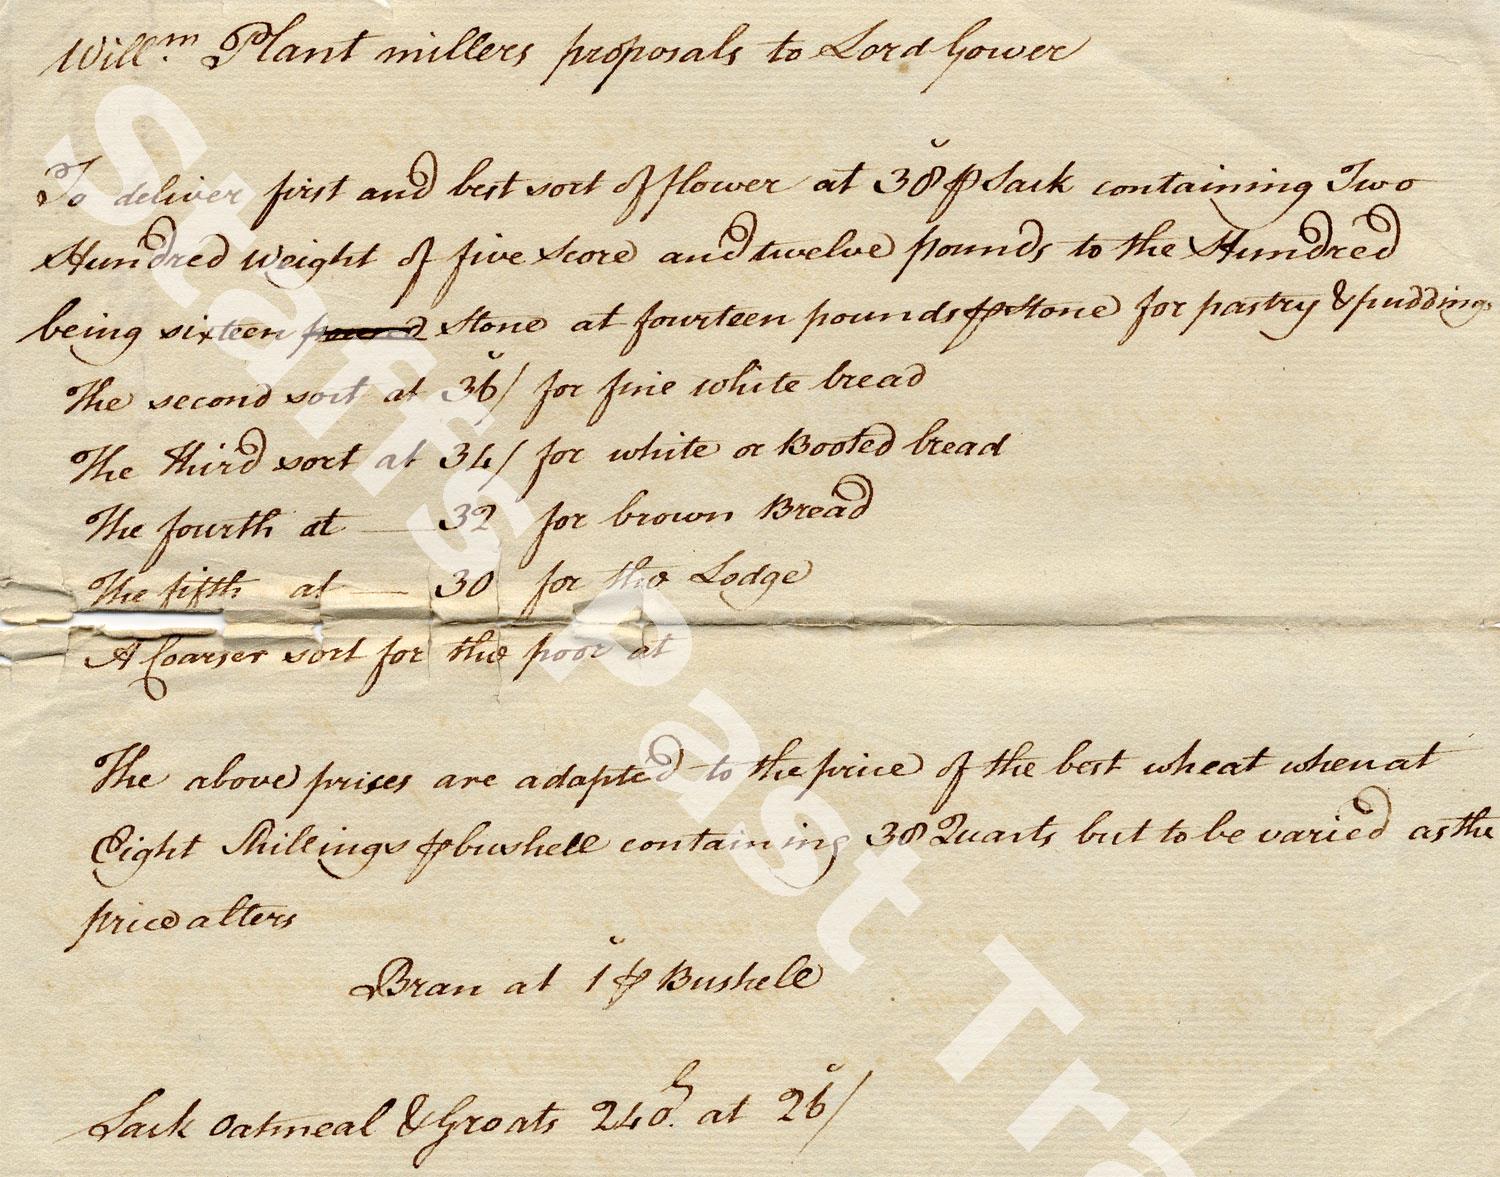 Will.m Plant millers proposals to Lord Gower
To deliver first and best sort of flower at 38s ⅌ Sack containing Two
Hundred weight of five score and twelve pounds to the Hundred
being sixteen pound stone at fourteen pounds ⅌ stone for pastry & puddings
The second sort at 36s/ for fine white bread
The third sort at 34/ for white or Booted bread
The fourth at — 32 for brown Bread
The fifth at — 30 for the Lodge
A Coarser sort for the poor at
The above prises are adapted to the price of the best wheat when at
Eight Shillings ⅌ bushell containing 38 Quarts but to be varied as the
price alters
Bran at 1s ⅌ Bushell
Sack oatmeal & Groats 240.lb at 26s/
Staffs Past Tra